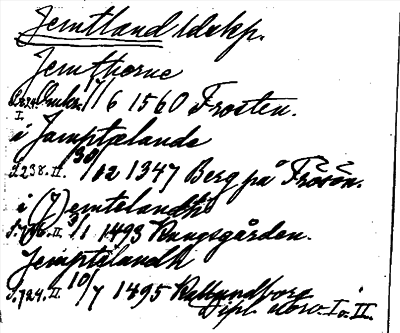 Jemtland ldskp.
Jemthorne
I. 17/6 1560 Frosten.
i Jamptælande
S.238.II. 30/12 1347 Berg på Frösön.
i (J)emtelandh
II. 3/1 1493 Kungsgården.
Jemptelandh
S.724.II. 10/7 1495 Kallundborg
Dipl. norv. I o. II.